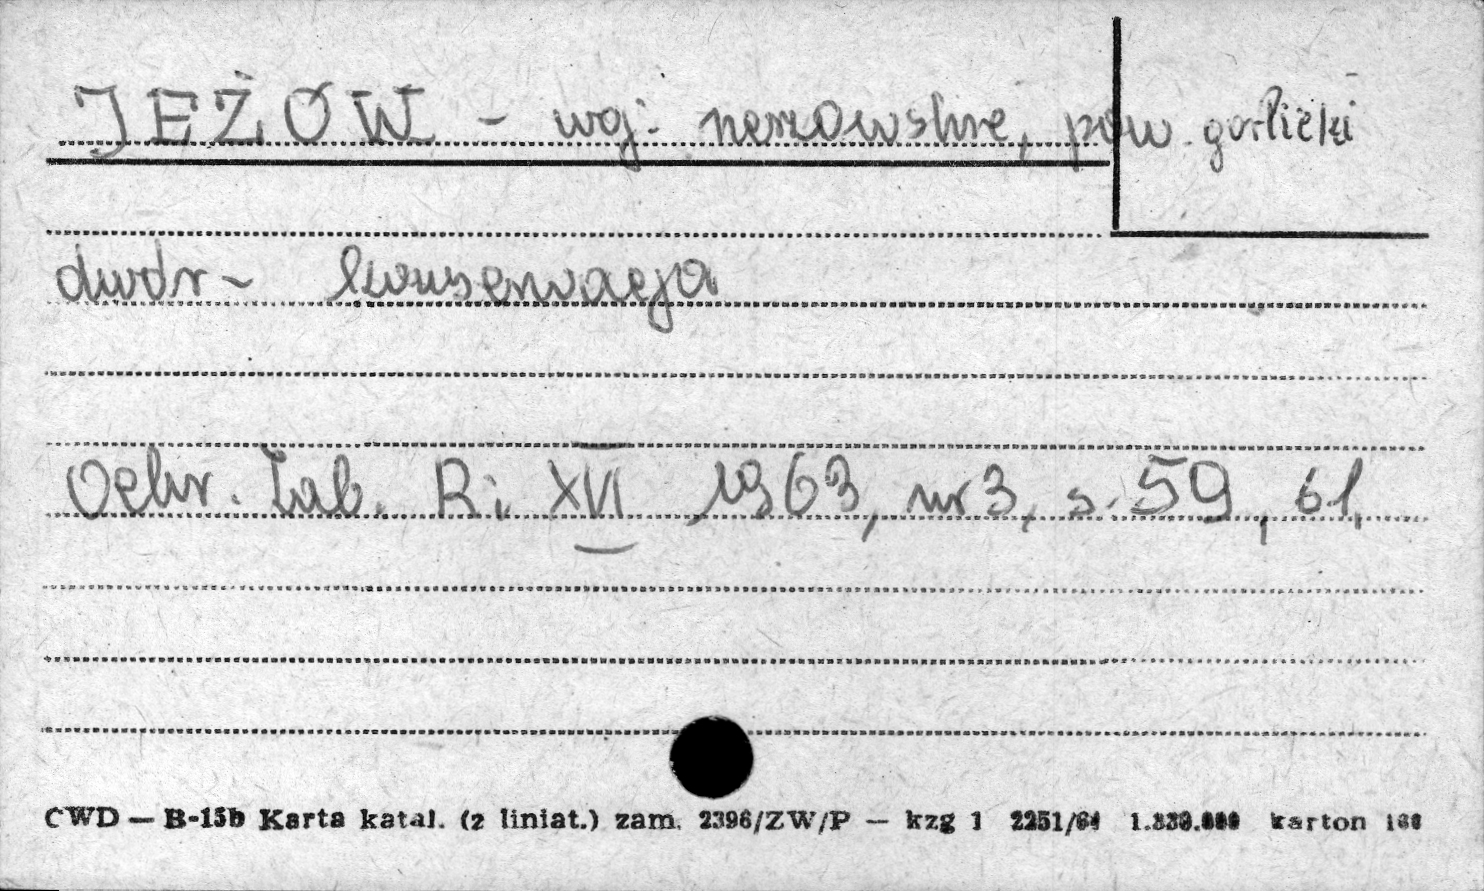 JEŻÓW - woj. rzeszowskie, pow. gorlicki
dwór - konserwacja
Ochr. Zab. R. XVI 1963, nr 3, s. 59, 61.
CWD — B-15b Karta katal. (z liniat.) zam. 2396/ZW/P — kzg 1 2251/64 karton